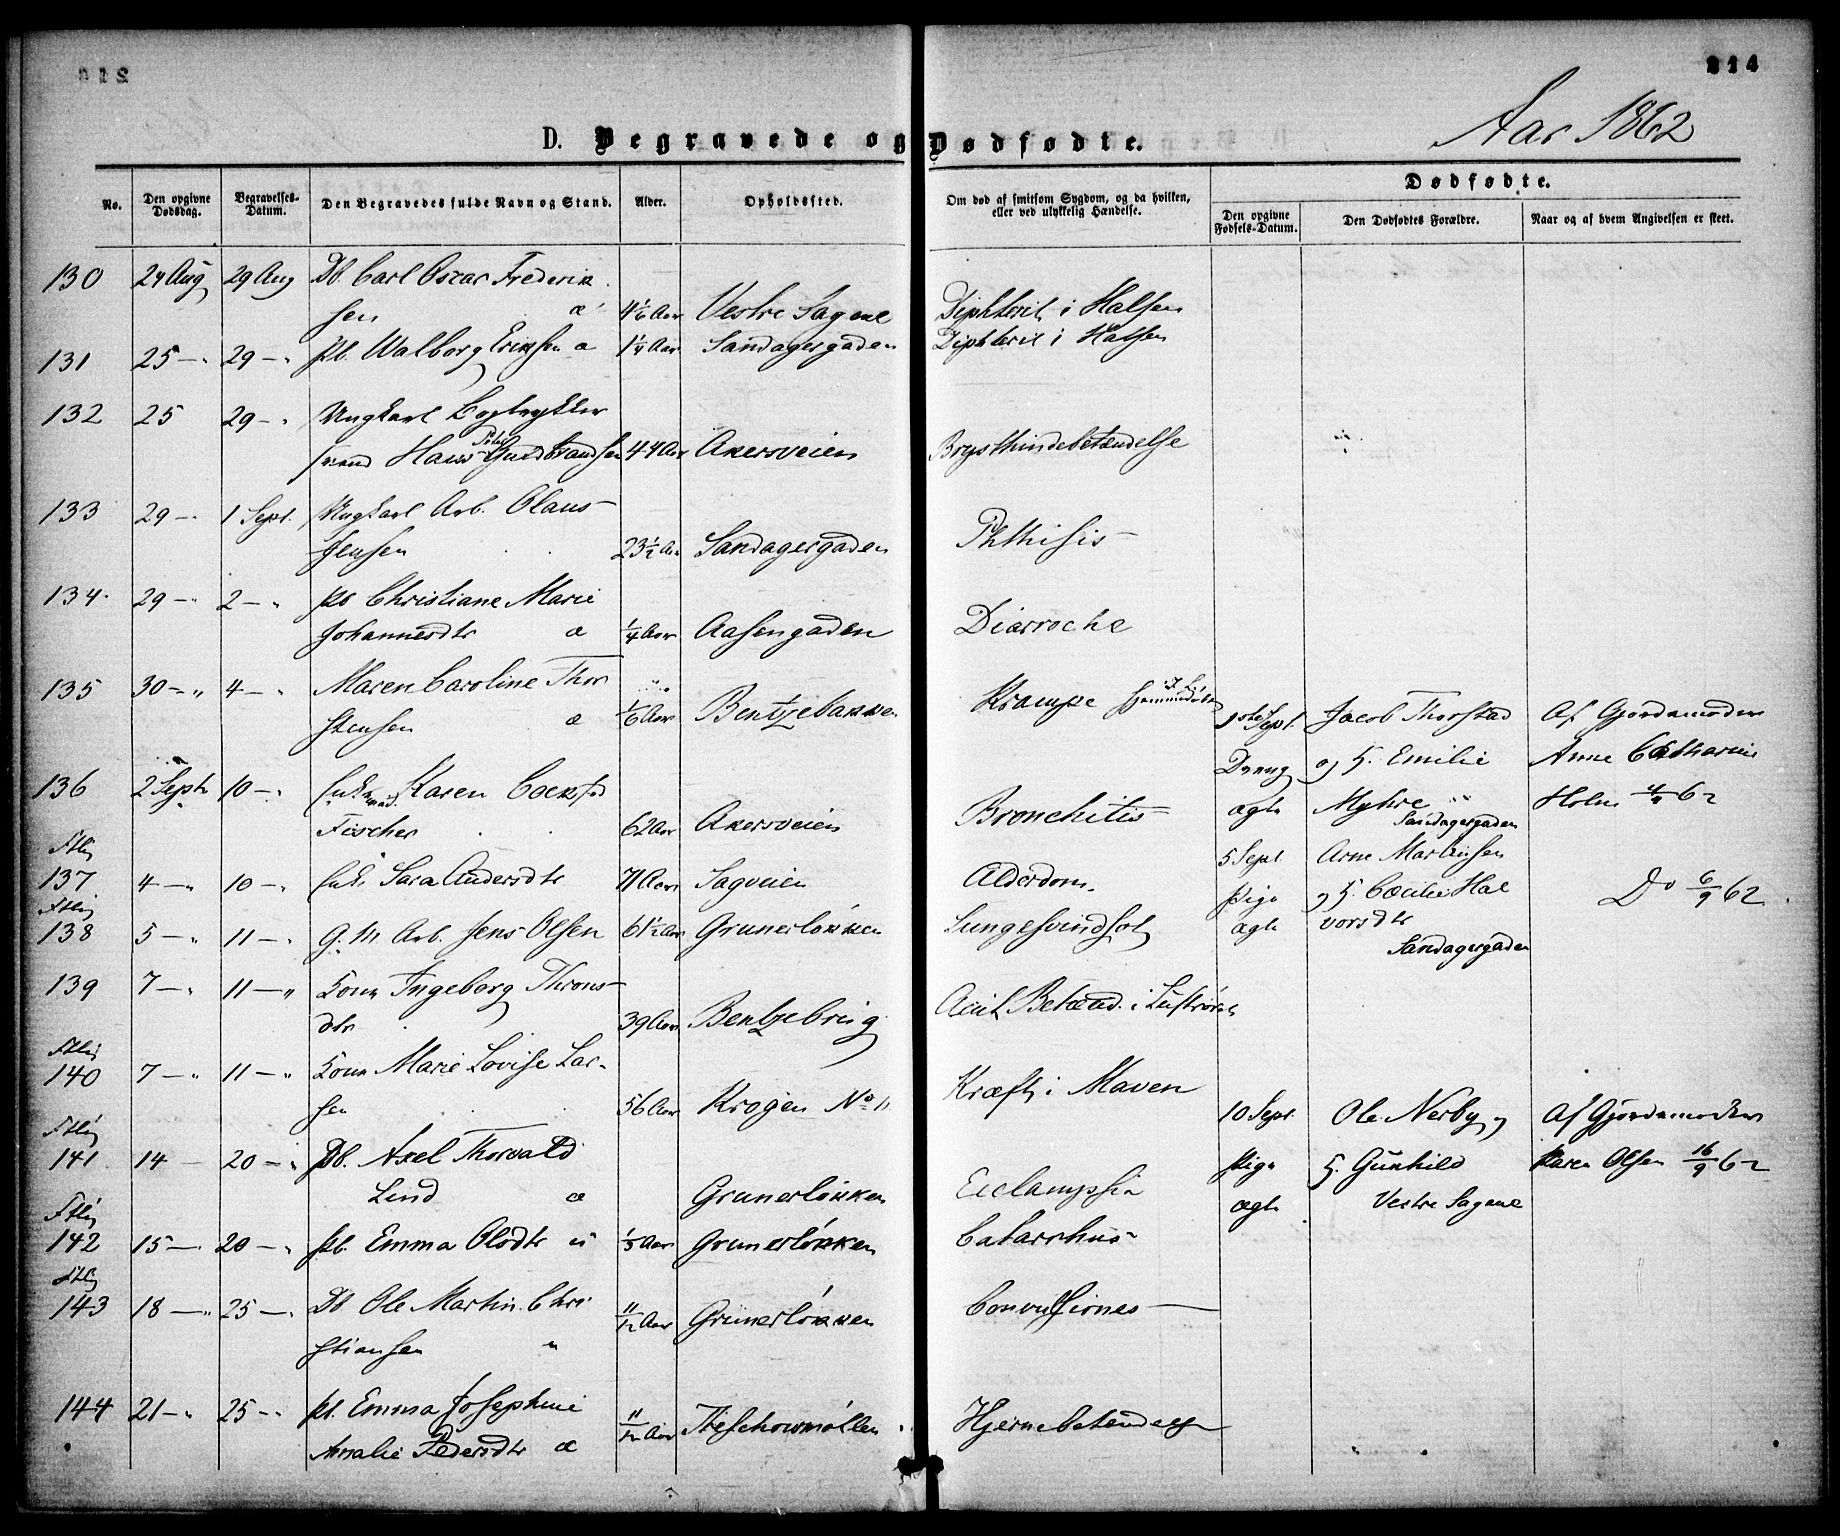 214
Aar 1862
D. Begravede og Dødfødte.
No.
Den opgivne Dødsdag.
Begravelses-Datum.
Den Begravedes fulde Navn og Stand.
Alder.
Opholdssted.
Om død af smitsom Sygdom, og da hvilken, eller ved ulykkelig Hændelse.
Dødfødte.
Den opgivne Fødsels-Datum.
Den Dødfødtes Forældre.
Naar og af hvem Angivelsen er skeet.
130 24 Aug 29 Aug Db. Carl Oscar Frederik
sen æ 4 1/6 Aar Vestre Sagene Diphterit i Halsen
131 25 - " 29 - " Pb. Walborg Eriksen æ 1 1/4 Aar Sandagergaden Diphterit i Halsen
132 25 29 - " Ungkarl Bogtrykker
svend Hans Peter Gudbrandsen 44 Aar Akersveien Brysthindebetændelse
133 29 - 1 Sept. Ungkarl Arb. Olaus
Jensen 23 1/2 Aar Sandagergaden Phthisis
134 29 - " 2 - " Pb Christiane Marie
Johannesdtr æ 1/4 Aar Aasengaden Diarroche
135 30 - " 4 - " Maren Caroline Thor
stensen æ 1/6 Aar Bentzebakken Krampe
1ste Sept. Jacob Thorstad Af Gjordemoder
Dreng og H. Emilie Anne Catharine
ægte Myhre Holm 4/9 62
Sandagergaden
136 2 Septr 10 - " Enke Karen
Fischer 62 Aar Akersveien Bronchitis
5 Sept Arne Martinsen
Ftlig
137 4 - " 10 - " Enke Sara Andersdtr 71 Aar Sagveien Alderdom.
Pige og H. Cæcilie Hal Do 6/9 62
Ftlig
138 5 - " 11 - " G. M. Arb. Jens Olsen 61 1/2 Aar Grunerløkken Lungesvindsot
ægte vorsdtr
Sandagergaden
139 7 - " 11 - " Kone Ingeborg Throns
dtr 39 Aar Bentzebrug Acut Betænd. i Luftrøret
Ftlig
140 7 - " 11 - " Kone Marie Lovise Lar-
sen 56 Aar Krogen No 11 Kræft i Maven
10 Sept. Ole Nerby og Af Gjordemoder
Ftlig
141 14 - 20 - " Db. Axel Thorvald
Lind æ Grunerløkken Eclampsia
Pige H. Gunhild Karen Olsen 16/9 62
ægte Vestre Sagene
Ftlig
142 15 - 20 - " Pb. Emma Olsdtr u 1/3 Aar Grunerløkken Catarrhus
Ftlig
143 18 - " 25 - " Db Ole Martin Chri
stiansen " 11/12 Aar Grunerløkken Convulsiones
144 21 - " 25 - " Pb. Emma Josephine
Amalie Pedersdtr æ 11/12 Aar Treschowmøllen Hjernebetændelse